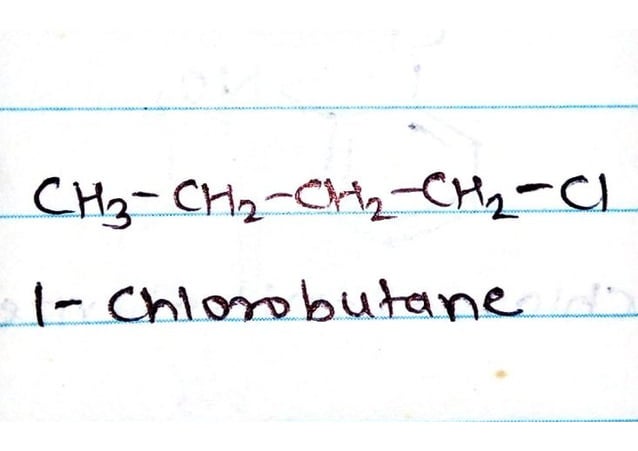 CH₃-CH₂-CH₂-CH₂-Cl
1-Chlorobutane